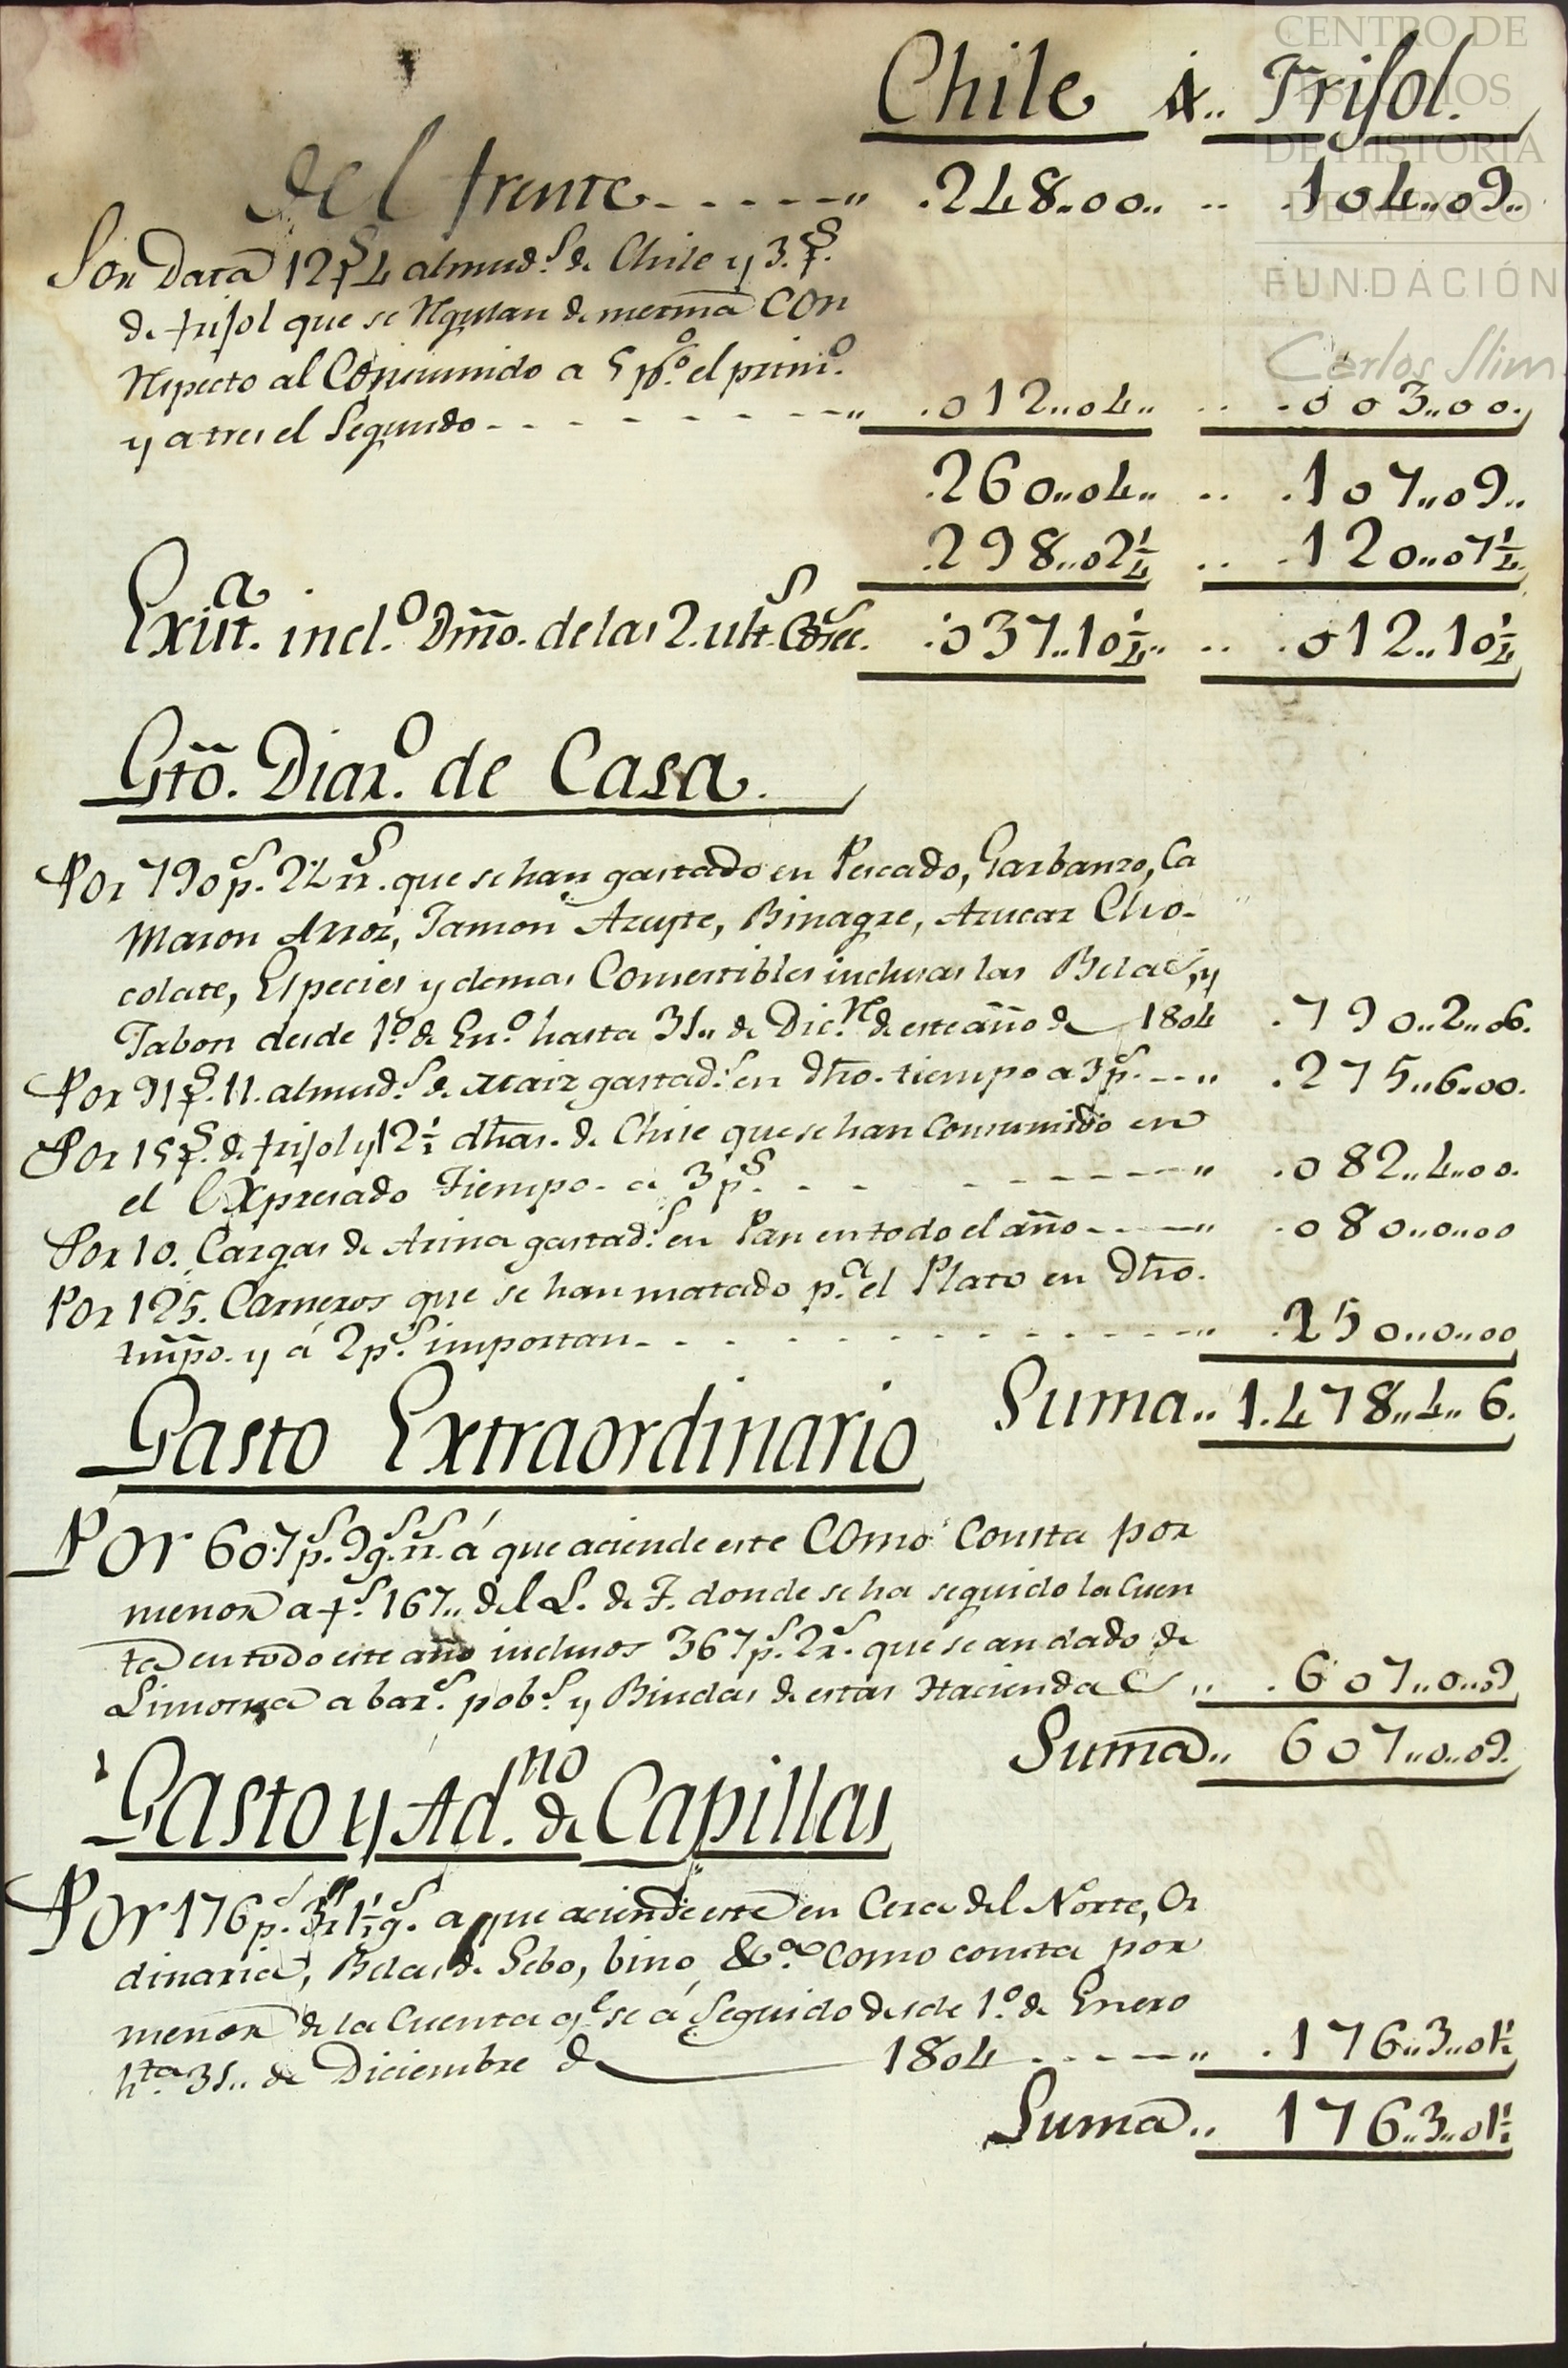 CENTRO DE
ESTUDIOS
DE HISTORIA
DE MÉXICO
FUNDACIÓN
Carlos Slim
Chile A.. Frisol.
del frente - - - - - " .248..00.. .. .104..09..
Son Data 12 f.s 4 almud.s de Chile y 3. f.s
de frisol que se regulan de merma con
respecto al Consumido a 5 p%.o el prim.o
y a tres el Segundo - - - - - - - " .012..04.. .. .003..00.
.260..04.. .. .107..09..
.298..02 1/4 .. .120..07 1/4
Exist.a incl.o Dmo. de las 2. ult.s Cosec. .037..10 1/4.. .. .012..10 1/4
Gto. Diar.o de Casa.
Por 790 p.s 2 1/2 rr.s que se han gastado en Pescado, Garbanzo, Ca
maron Arroz, Jamon Azeyte, Binagre, Azucar Cho-
colate, Especies y demas Comestibles inclusas las Belas, y
Jabon desde 1.o de En.o hasta 31.. de Dic.re de este año de 1804 .790..2..06.
Por 91 f.s 11. almud.s de maiz gastad.s en dho. tiempo a 3 p.s - - " .275..6..00.
Por 15 f.s de frisol y 12 1/2 dhas. de Chile que se han Consumido en
el Expresado Tiempo - a 3 p.s - - - - - - - " .082..4..00.
Por 10. Cargas de Arina gastad.s en Pan en todo el año - - - " .080..0..00
Por 125. Carneros que se han matado p.a el Plato en Dho.
tmpo. y á 2 p.s importan - - - - - - - - - " .250..0..00
Suma.. 1.478..4..6.
Gasto Extraordinario
Por 607 p.s 9 g.s rr.s á que aciende este Como Consta por
menor a f.s 167.. del L. de F. donde se ha seguido la Cuen
ta en todo este año inclusos 367 p.s 2 r.s que se an dado de
Limosna a bar.s pob.s y Biudas de estas Haciendas .. .607..0..09
Suma.. 607..0..09.
Gasto y Ad.no de Capillas
Por 176 p.s 3 rr 1 1/2 g.s a que aciende este en Cera del Norte, Or
dinaria, Belas de Sebo, bino, &.a como consta por
menor de la Cuenta q.e se á Seguido desde 1.o de Enero
h.ta 31.. de Diciembre de 1804 - - - - " .176..3..01 1/2
Suma.. 176..3..01 1/2